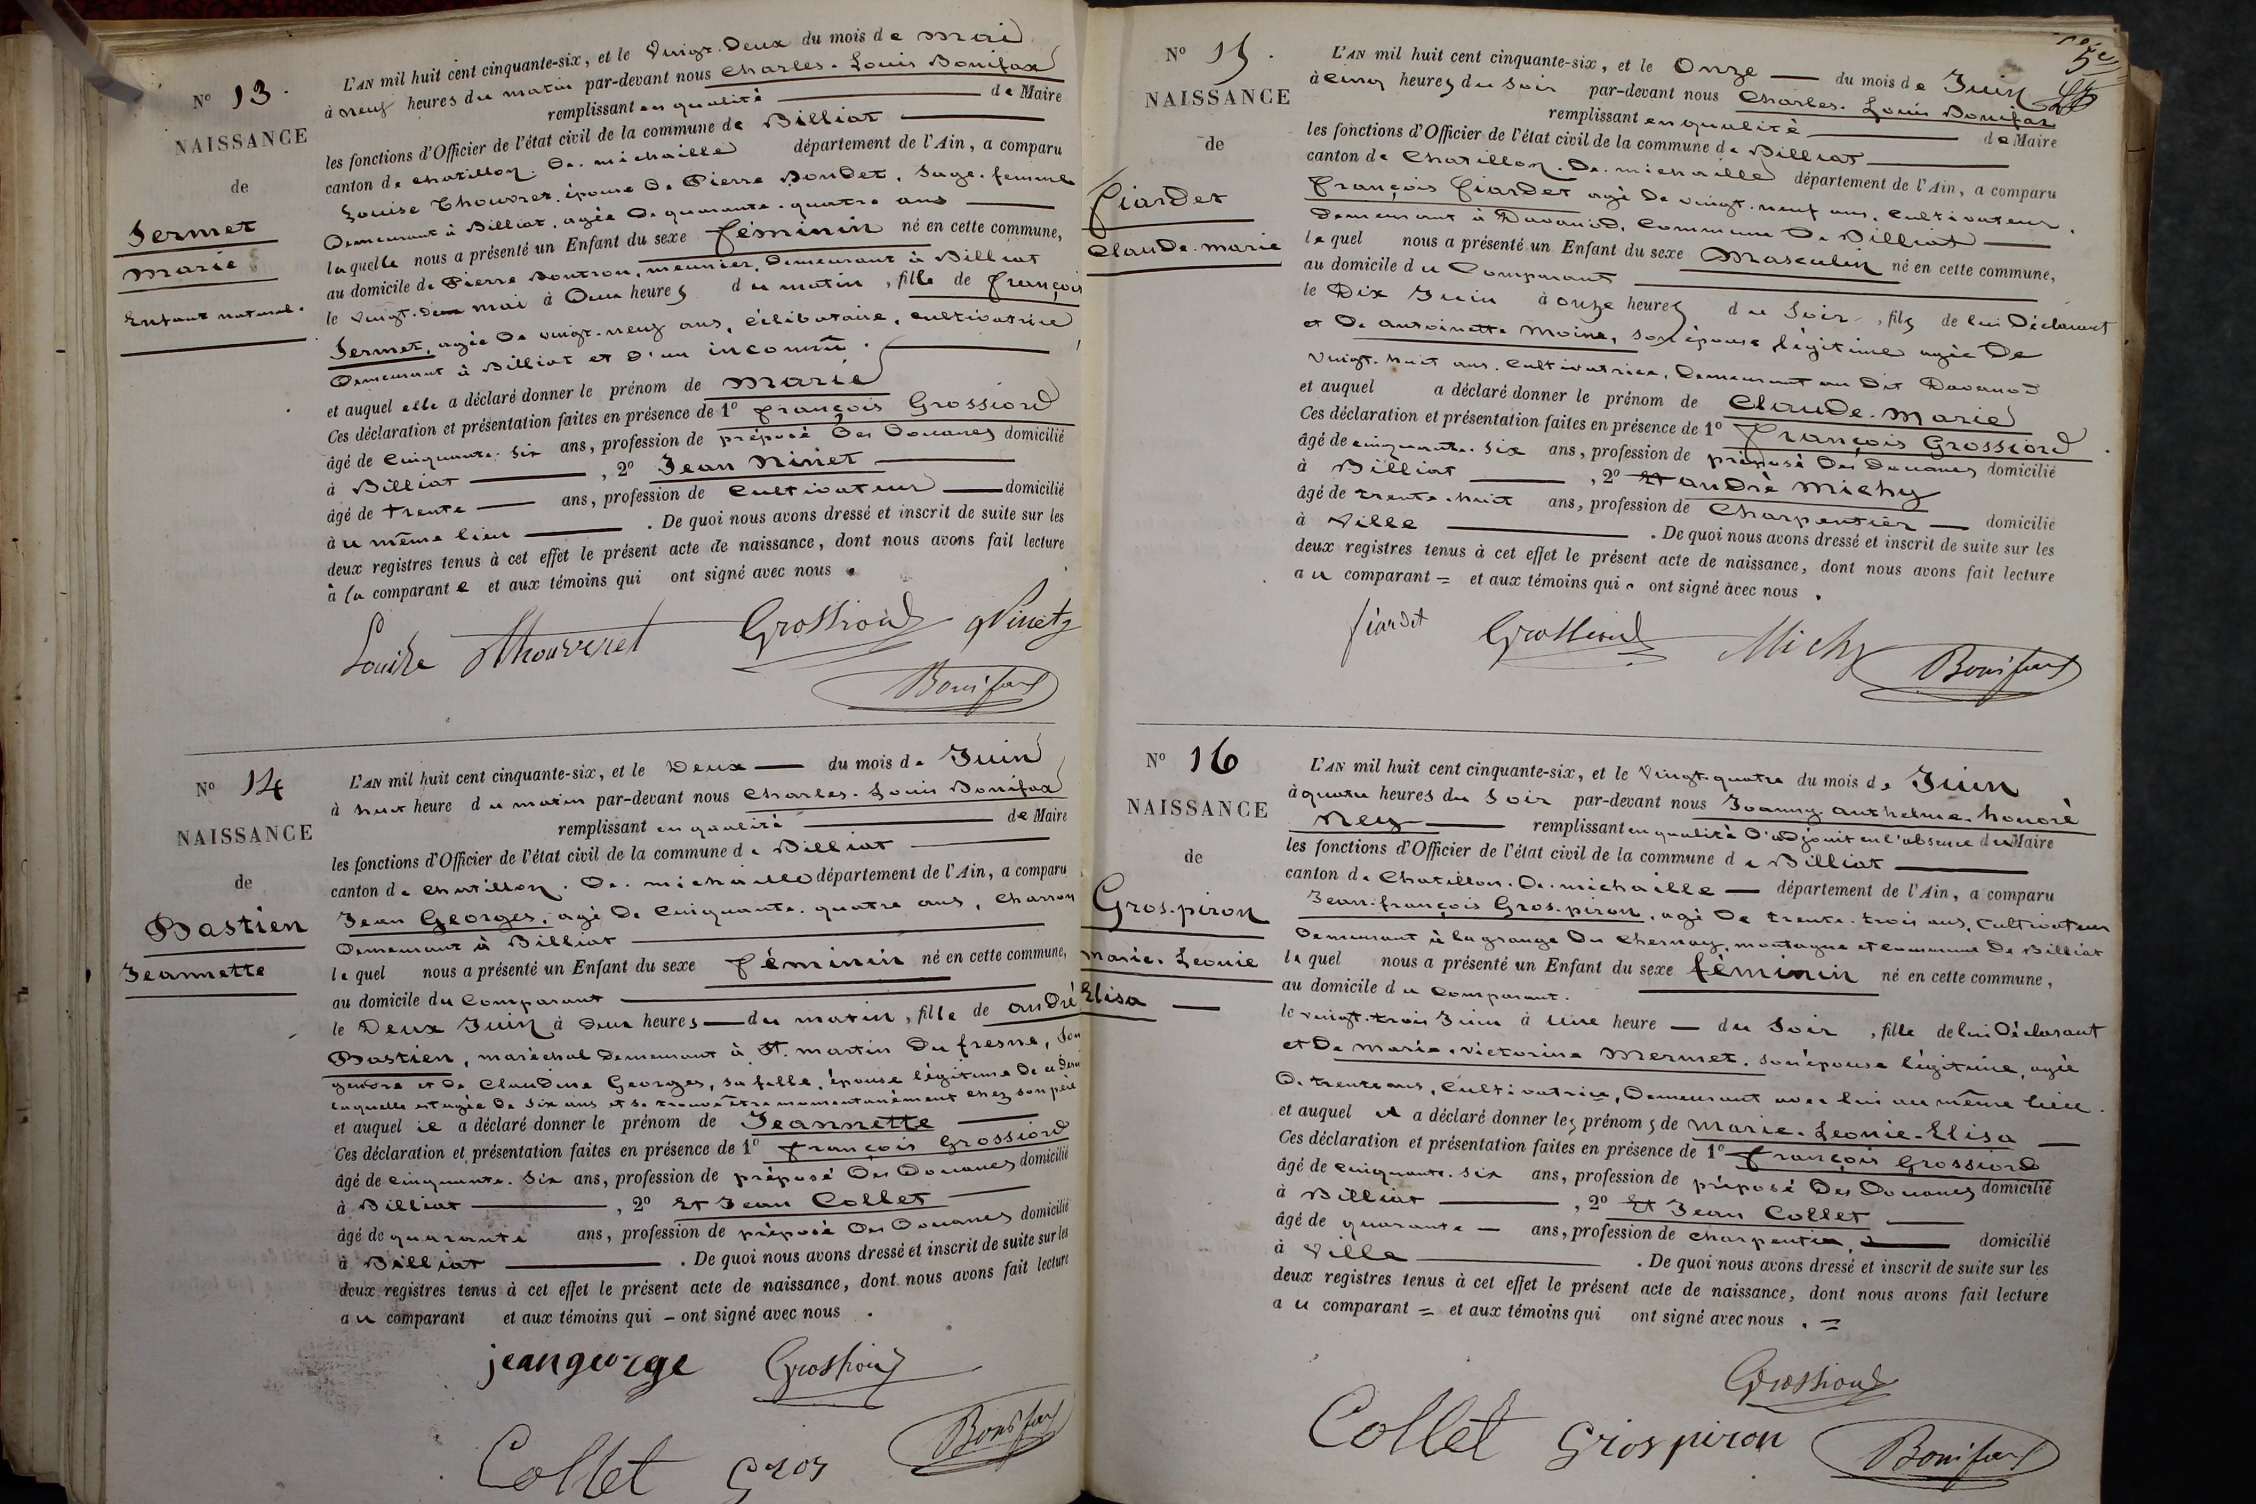 N° 13.
NAISSANCE
de
Sermet
Marie
Enfant naturel.
L'AN mil huit cent cinquante-six, et le vingt-Deux du mois de Mai
à neuf heures du matin par-devant nous Charles-Louis Bonifax
remplissant en qualité de Maire
les fonctions d'Officier de l'état civil de la commune de Billiat
canton de Chatillon-De-michaille département de l'Ain, a comparu
Louise Thouvret, épouse De Pierre Bondet, Sage-femme
Demeurant à Billiat, agée De quarante-quatre ans
laquelle nous a présenté un Enfant du sexe féminin né en cette commune,
au domicile de Pierre Boutron, meunier, Demeurant à Billiat
le vingt-deux mai à Deux heures du matin, fille de françois
Sermet, agée De vingt-neuf ans, célibataire, cultivatrice
Demeurant à Billiat et D'un inconnu.
et auquel elle a déclaré donner le prénom de Marie
Ces déclaration et présentation faites en présence de 1° françois Grossiord
âgé de Cinquante-six ans, profession de préposé Des Douanes domicilié
à Billiat, 2° Jean Ninet
âgé de trente ans, profession de Cultivateur domicilié
au même lieu. De quoi nous avons dressé et inscrit de suite sur les
deux registres tenus à cet effet le présent acte de naissance, dont nous avons fait lecture
à la comparante et aux témoins qui ont signé avec nous.
Louise Thouvret Grossiord Ninet
Bonifax
N° 14
NAISSANCE
de
Bastien
Jeannette
L'AN mil huit cent cinquante-six, et le Deux du mois de Juin
à huit heure du matin par-devant nous Charles-Louis Bonifax
remplissant en qualité de Maire
les fonctions d'Officier de l'état civil de la commune de Billiat
canton de Chatillon-De-michaille département de l'Ain, a comparu
Jean Georges, agé De Cinquante-quatre ans, Charron
Demeurant à Billiat
lequel nous a présenté un Enfant du sexe féminin né en cette commune,
au domicile du Comparant
le Deux Juin à deux heures du matin, fille de andré
Bastien, maréchal Demeurant à St. martin Du fresne, Son
gendre et De Claudine Georges, sa fille, épouse légitime De ce Dernier
laquelle est agée De Six ans et se trouve être momentanément chez son père
et auquel il a déclaré donner le prénom de Jeannette
Ces déclaration et présentation faites en présence de 1° françois Grossiord
âgé de cinquante-Six ans, profession de préposé Des Douanes domicilié
à Billiat, 2° Et Jean Collet
âgé de quarante ans, profession de préposé Des Douanes domicilié
à Billiat. De quoi nous avons dressé et inscrit de suite sur les
deux registres tenus à cet effet le présent acte de naissance, dont nous avons fait lecture
au comparant et aux témoins qui – ont signé avec nous.
jean george Grossiord
Collet Gros Bonifax
N° 15.
NAISSANCE
de
fiardet
Claude-marie
L'AN mil huit cent cinquante-six, et le Onze du mois de Juin
à cinq heures du Soir par-devant nous Charles-Louis Bonifax
remplissant en qualité de Maire
les fonctions d'Officier de l'état civil de la commune de Billiat
canton de Chatillon-De-michaille département de l'Ain, a comparu
françois fiardet agé De vingt-neuf ans, Cultivateur,
Demeurant à Davanod, Commune De Billiat
lequel nous a présenté un Enfant du sexe Masculin né en cette commune,
au domicile du Comparant
le Dix Juin à onze heures du Soir, fils de lui Déclarant
et De antoinette Moine, son épouse légitime agée De
vingt-huit ans, Cultivatrice, Demeurant au Dit Davanod
et auquel a déclaré donner le prénom de Claude-Marie
Ces déclaration et présentation faites en présence de 1° françois Grossiord
âgé de cinquante-six ans, profession de préposé Des Douanes domicilié
à Billiat, 2° Et andré Michy
âgé de trente-huit ans, profession de Charpentier domicilié
à Ville. De quoi nous avons dressé et inscrit de suite sur les
deux registres tenus à cet effet le présent acte de naissance, dont nous avons fait lecture
au comparant = et aux témoins qui ont signé avec nous.
fiardet Grossiord Michy
Bonifax
N° 16
NAISSANCE
de
Gros-piron
marie-Leonie
Elisa
L'AN mil huit cent cinquante-six, et le Vingt-quatre du mois de Juin
à quatre heures du Soir par-devant nous Joanny anthelme-honoré
Ney remplissant en qualité D'adjoint en l'absence du Maire
les fonctions d'Officier de l'état civil de la commune de Billiat
canton de Chatillon-De-michaille département de l'Ain, a comparu
Jean-françois Gros-piron, agé De trente-trois ans, Cultivateur
Demeurant à la grange Du Chernay, montagne et commune De Billiat
lequel nous a présenté un Enfant du sexe féminin né en cette commune,
au domicile du Comparant.
le vingt-trois Juin à Une heure du Soir, fille de lui Déclarant
et De Marie-victorine Mermet, son épouse légitime, agée
De trente ans, Cultivatrice, Demeurant avec lui au même lieu.
et auquel il a déclaré donner les prénoms de Marie-Leonie-Elisa
Ces déclaration et présentation faites en présence de 1° françois Grossiord
âgé de cinquante-six ans, profession de préposé Des Douanes domicilié
à Billiat, 2° Et Jean Collet
âgé de quarante ans, profession de charpentier, domicilié
à Ville. De quoi nous avons dressé et inscrit de suite sur les
deux registres tenus à cet effet le présent acte de naissance, dont nous avons fait lecture
au comparant = et aux témoins qui ont signé avec nous. =
Grossiord
Collet Grospiron Bonifax